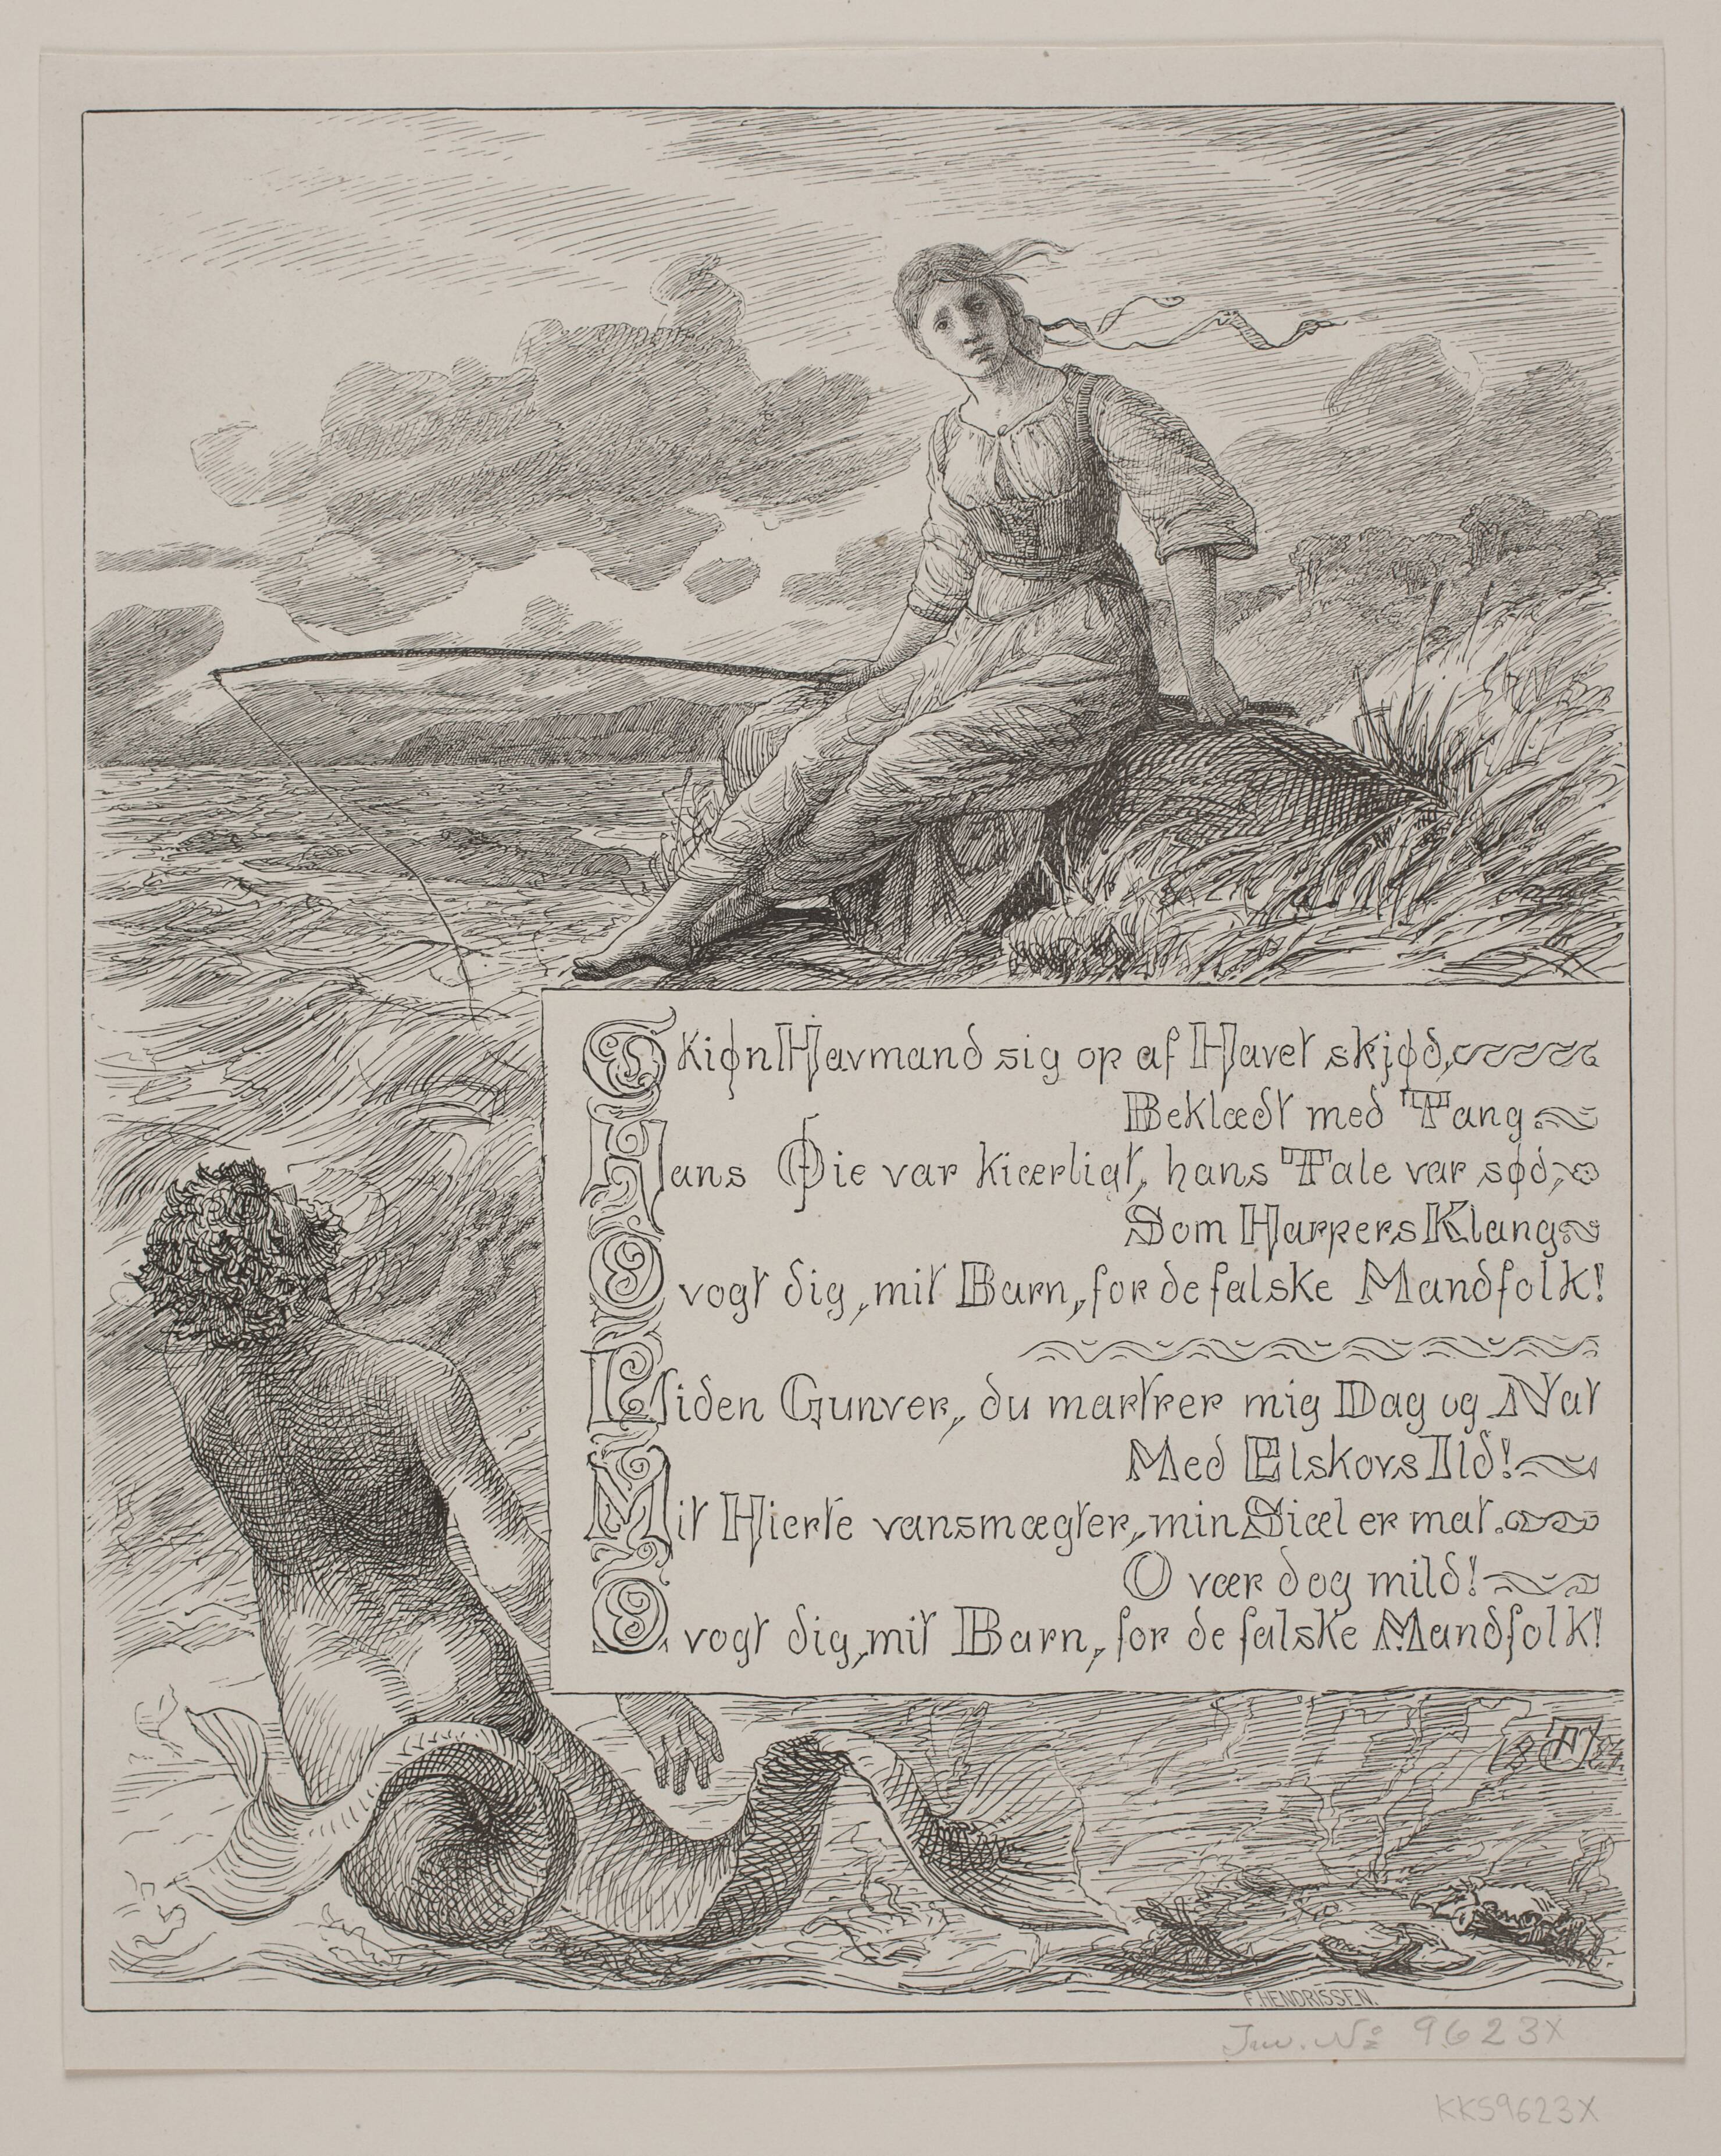 Skiøn Havmand sig op af Havet skjød,
Beklædt med Tang.
Hans Øie var kiærligt, hans Tale var sød,
Som Harpers Klang
O vogt dig, mit Barn, for de falske Mandfolk!
Liden Gunver, du martrer mig Dag og Nat
Med Elskovs Ild!
Mit Hierte vansmægter, min Siæl er mat.
O vær dog mild!
O vogt dig, mit Barn, for de falske Mandfolk!
F. HENDRIKSEN.
Inv. No 9623X
KKS9623X